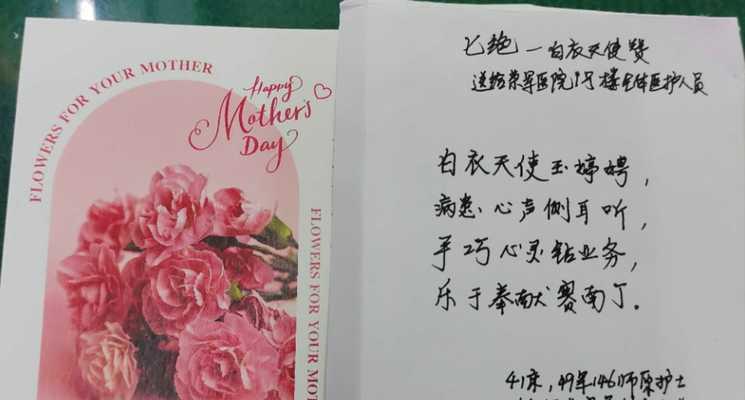 FLOWERS FOR YOUR MOTHER
Happy
Mother's
Day
FLOWERS FOR YOUR MOT
七绝一白衣天使赞
送给荣军医院1号楼全体医护人员
白衣天使玉婷娉，
病患心声侧耳听，
手巧心灵钻业务，
乐于奉献赛南丁。
41床，49年146师原护士